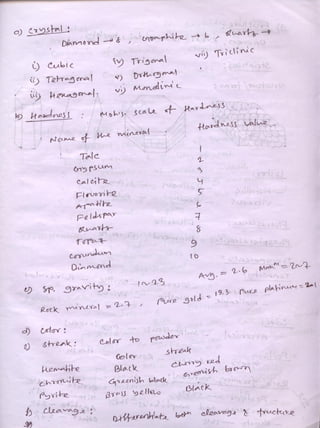 a) Crystal :
Diamond → 6, Graphite → 6, Quartz →
i) Cubic iv) Trigonal vii) Triclinic
ii) Tetragonal v) Orthogonal
iii) Hexagonal vi) Monclinic
b) Hardness : Moh's scale of Hardness
Name of the mineral Hardness value
Talc 1
Gypsum 2
Calcite 3
Flourite 4
Apatite 5
Feldspar 6
Quartz 7
Topaz 8
Corundum 9
Diamond 10
c) Sp. gravity : 1 - 23 Avg. = 2.6
Rock mineral = 2.7, Pure gold = 19.3 Pure platinum =
d) Color :
e) Streak : Color to powder
Color Streak
Hematite Black Cherry red
Chromite Greenish black Greenish brown
Pyrite Brass yellow Black
f) Cleavage : Differentiate betn cleavage & fracture